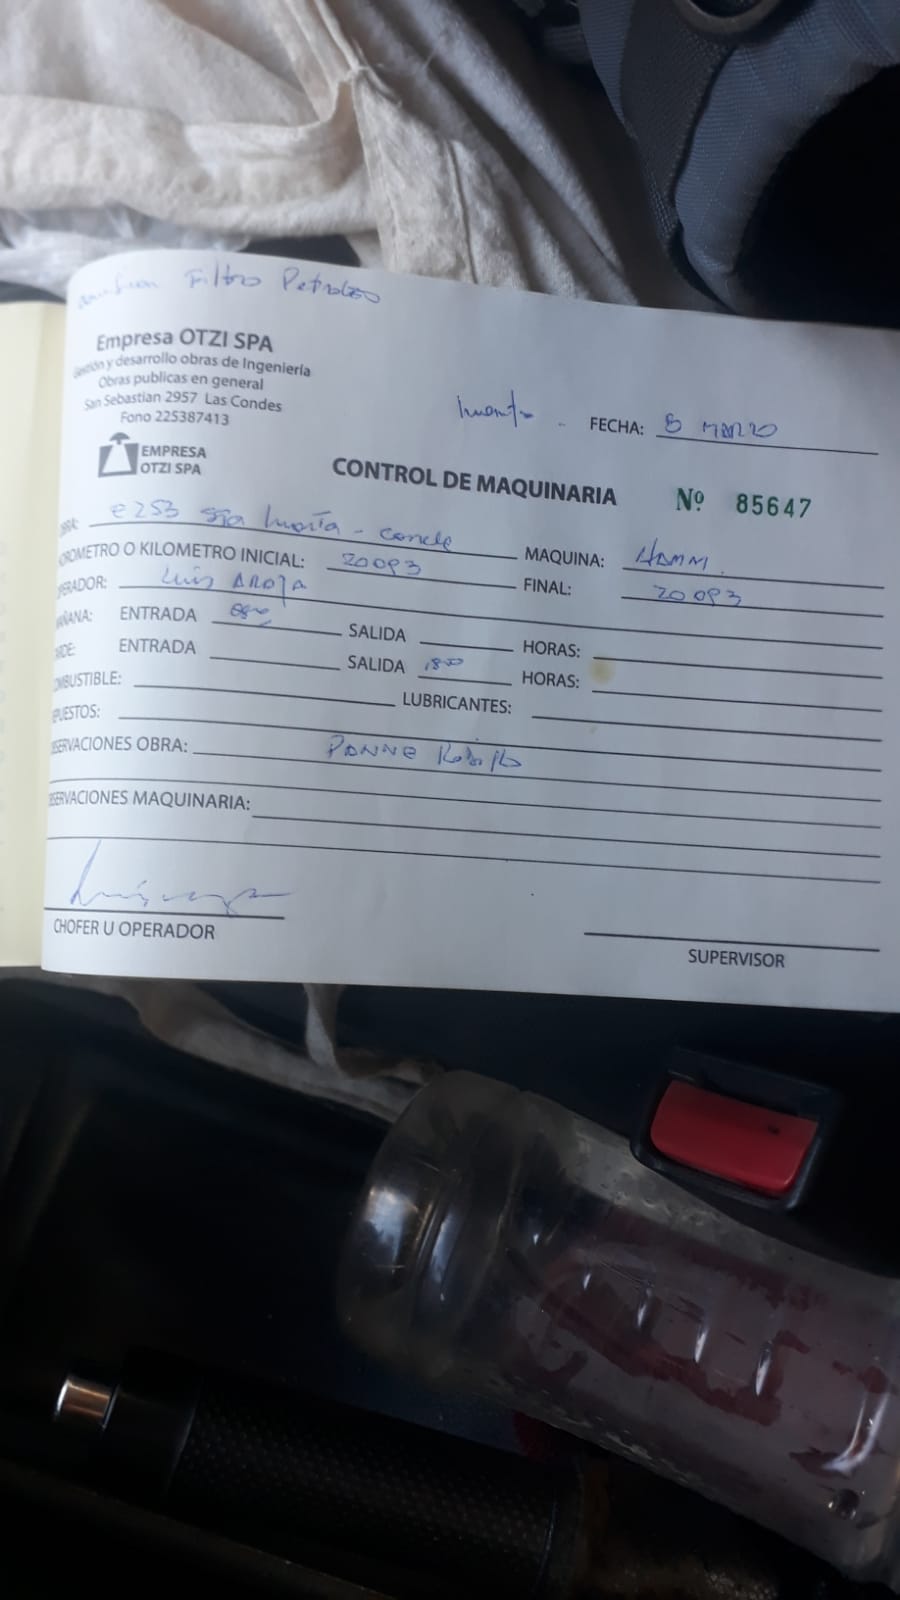 Filtro Petroleo
Empresa OTZI SPA
Gestión y desarrollo obras de Ingeniería
Obras publicas en general
San Sebastian 2957 Las Condes
Fono 225387413
EMPRESA
OTZI SPA
FECHA: 5 MARZO
CONTROL DE MAQUINARIA Nº 85647
OBRA: e 253 Sta MAQUINA: HAMM
HOROMETRO O KILOMETRO INICIAL: 20093 FINAL: 20093
OPERADOR: Luis
MAÑANA: ENTRADA SALIDA HORAS:
TARDE: ENTRADA SALIDA 18:00 HORAS:
COMBUSTIBLE: LUBRICANTES:
REPUESTOS:
OBSERVACIONES OBRA: PANNE Rodillo
OBSERVACIONES MAQUINARIA:
CHOFER U OPERADOR
SUPERVISOR